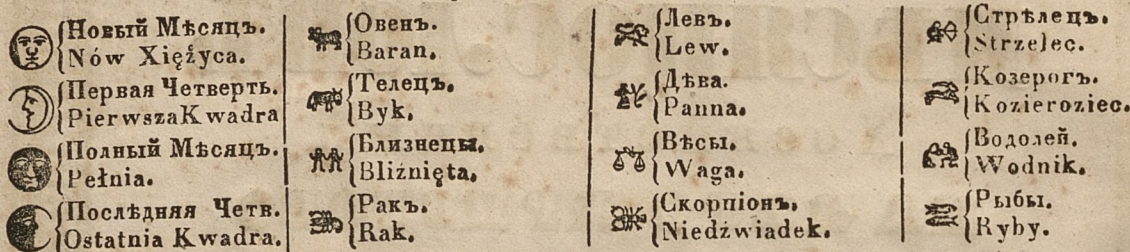 Новый Мѣсяцъ.
Nów Xiężyca.
Первая Четверть.
Pierwsza Kwadra
Полный Мѣсяцъ.
Pełnia.
Послѣдняя Четв.
Ostatnia Kwadra.
Овенъ.
Baran.
Телецъ.
Byk.
Близнецы.
Bliźnięta.
Ракъ.
Rak.
Левъ.
Lew.
Дѣва.
Panna.
Вѣсы.
Waga.
Скорпіонъ.
Niedźwiadek.
Стрѣлецъ.
Strzelec.
Козерогъ.
Kozieroziec.
Водолей.
Wodnik.
Рыбы.
Ryby.